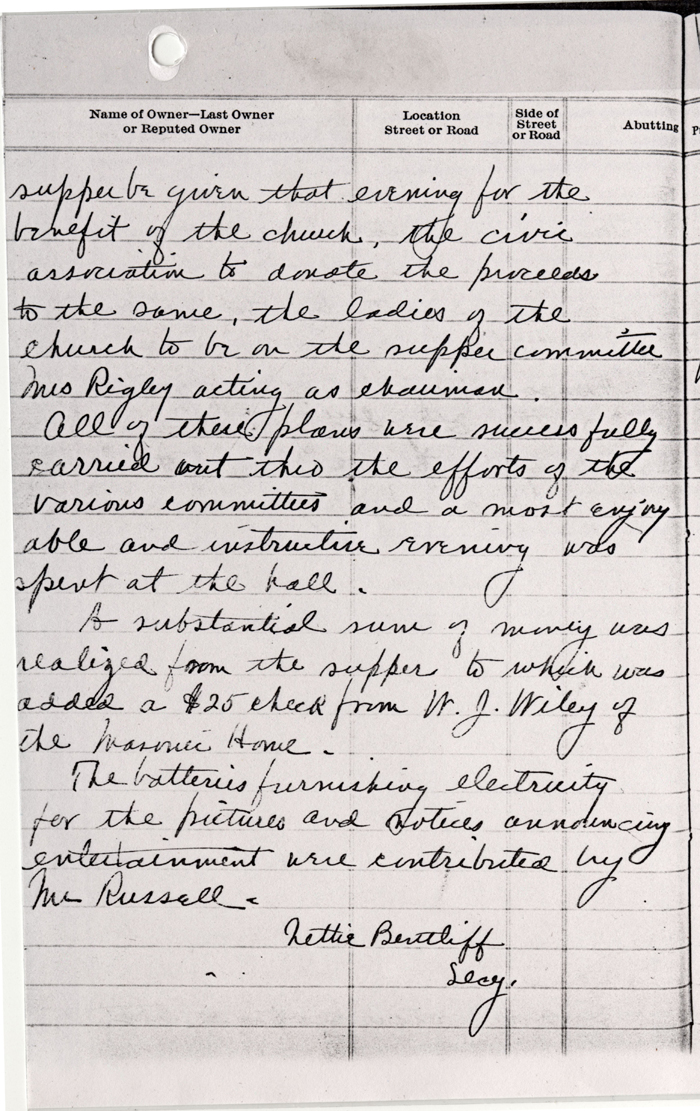 Name of Owner—Last Owner
or Reputed Owner
Location
Street or Road
Side of
Street
or Road
Abutting
supper be given that evening for the
benefit of the church, the civic
association to donate the proceeds
to the same, the ladies of the
church to be on the supper committee
Mrs Rigley acting as chairman.
All of these plans were successfully
carried out thro the efforts of the
various committees and a most enjoy
able and instructive evening was
spent at the hall.
A substantial sum of money was
realized from the supper to which was
added a $25 check from W. J. Wiley of
the Masonic Home.
The batteries furnishing electricity
for the pictures and notices announcing
entertainment were contributed by
Mr Russell.
Nettie Bentliff
Secy.